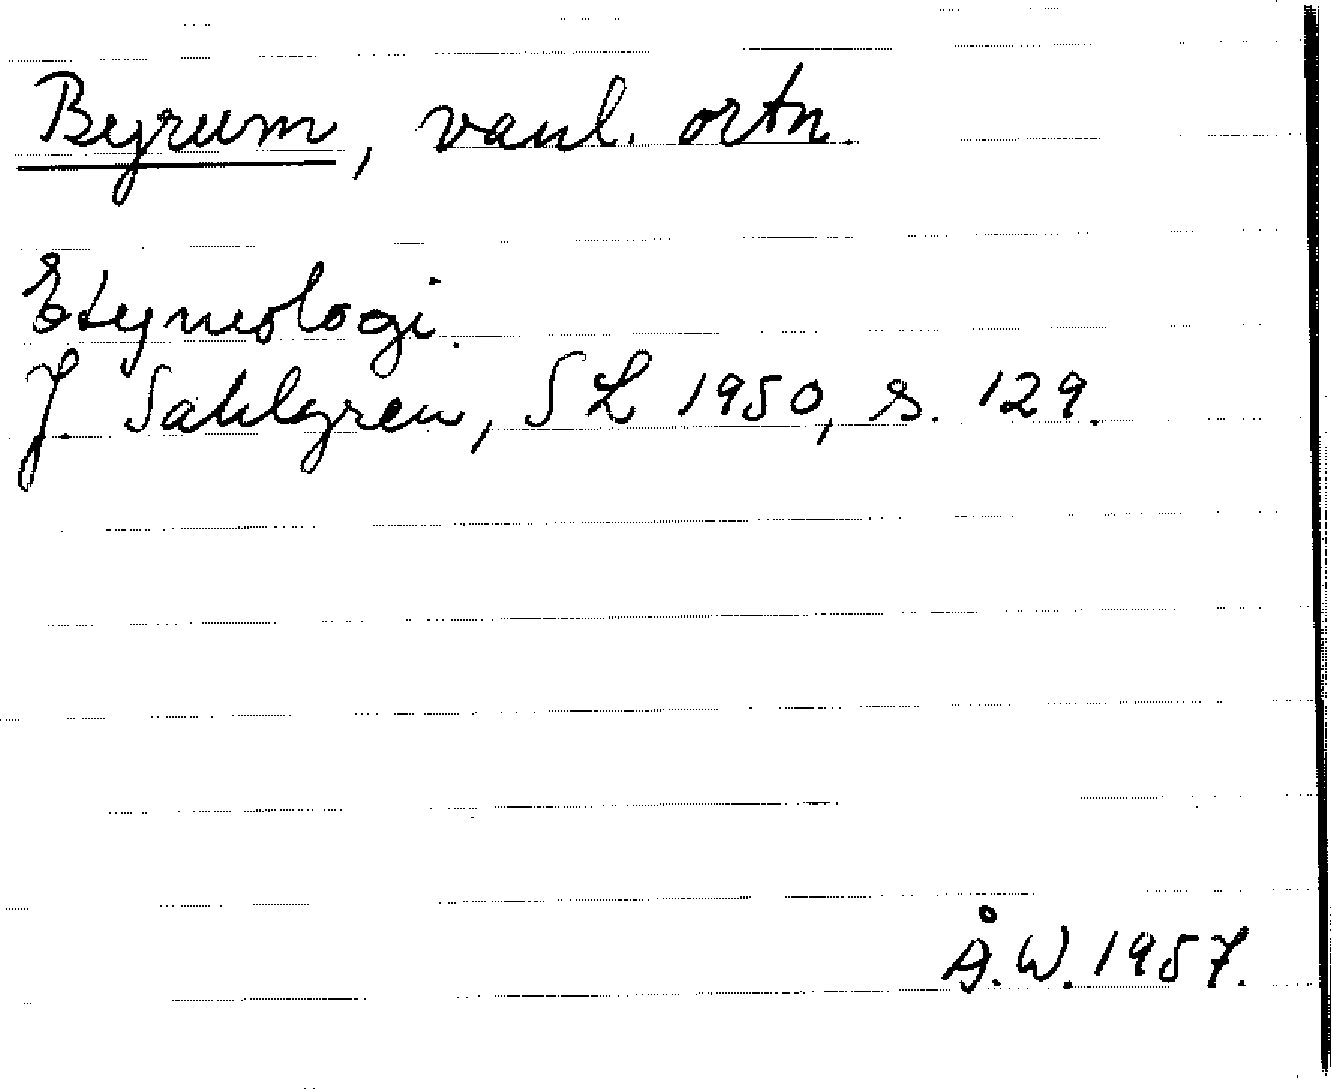 Byrum, vanl. ortn.
Etymologi.
J. Sahlgren, SL 1950, s. 129.
Å.W. 1957.